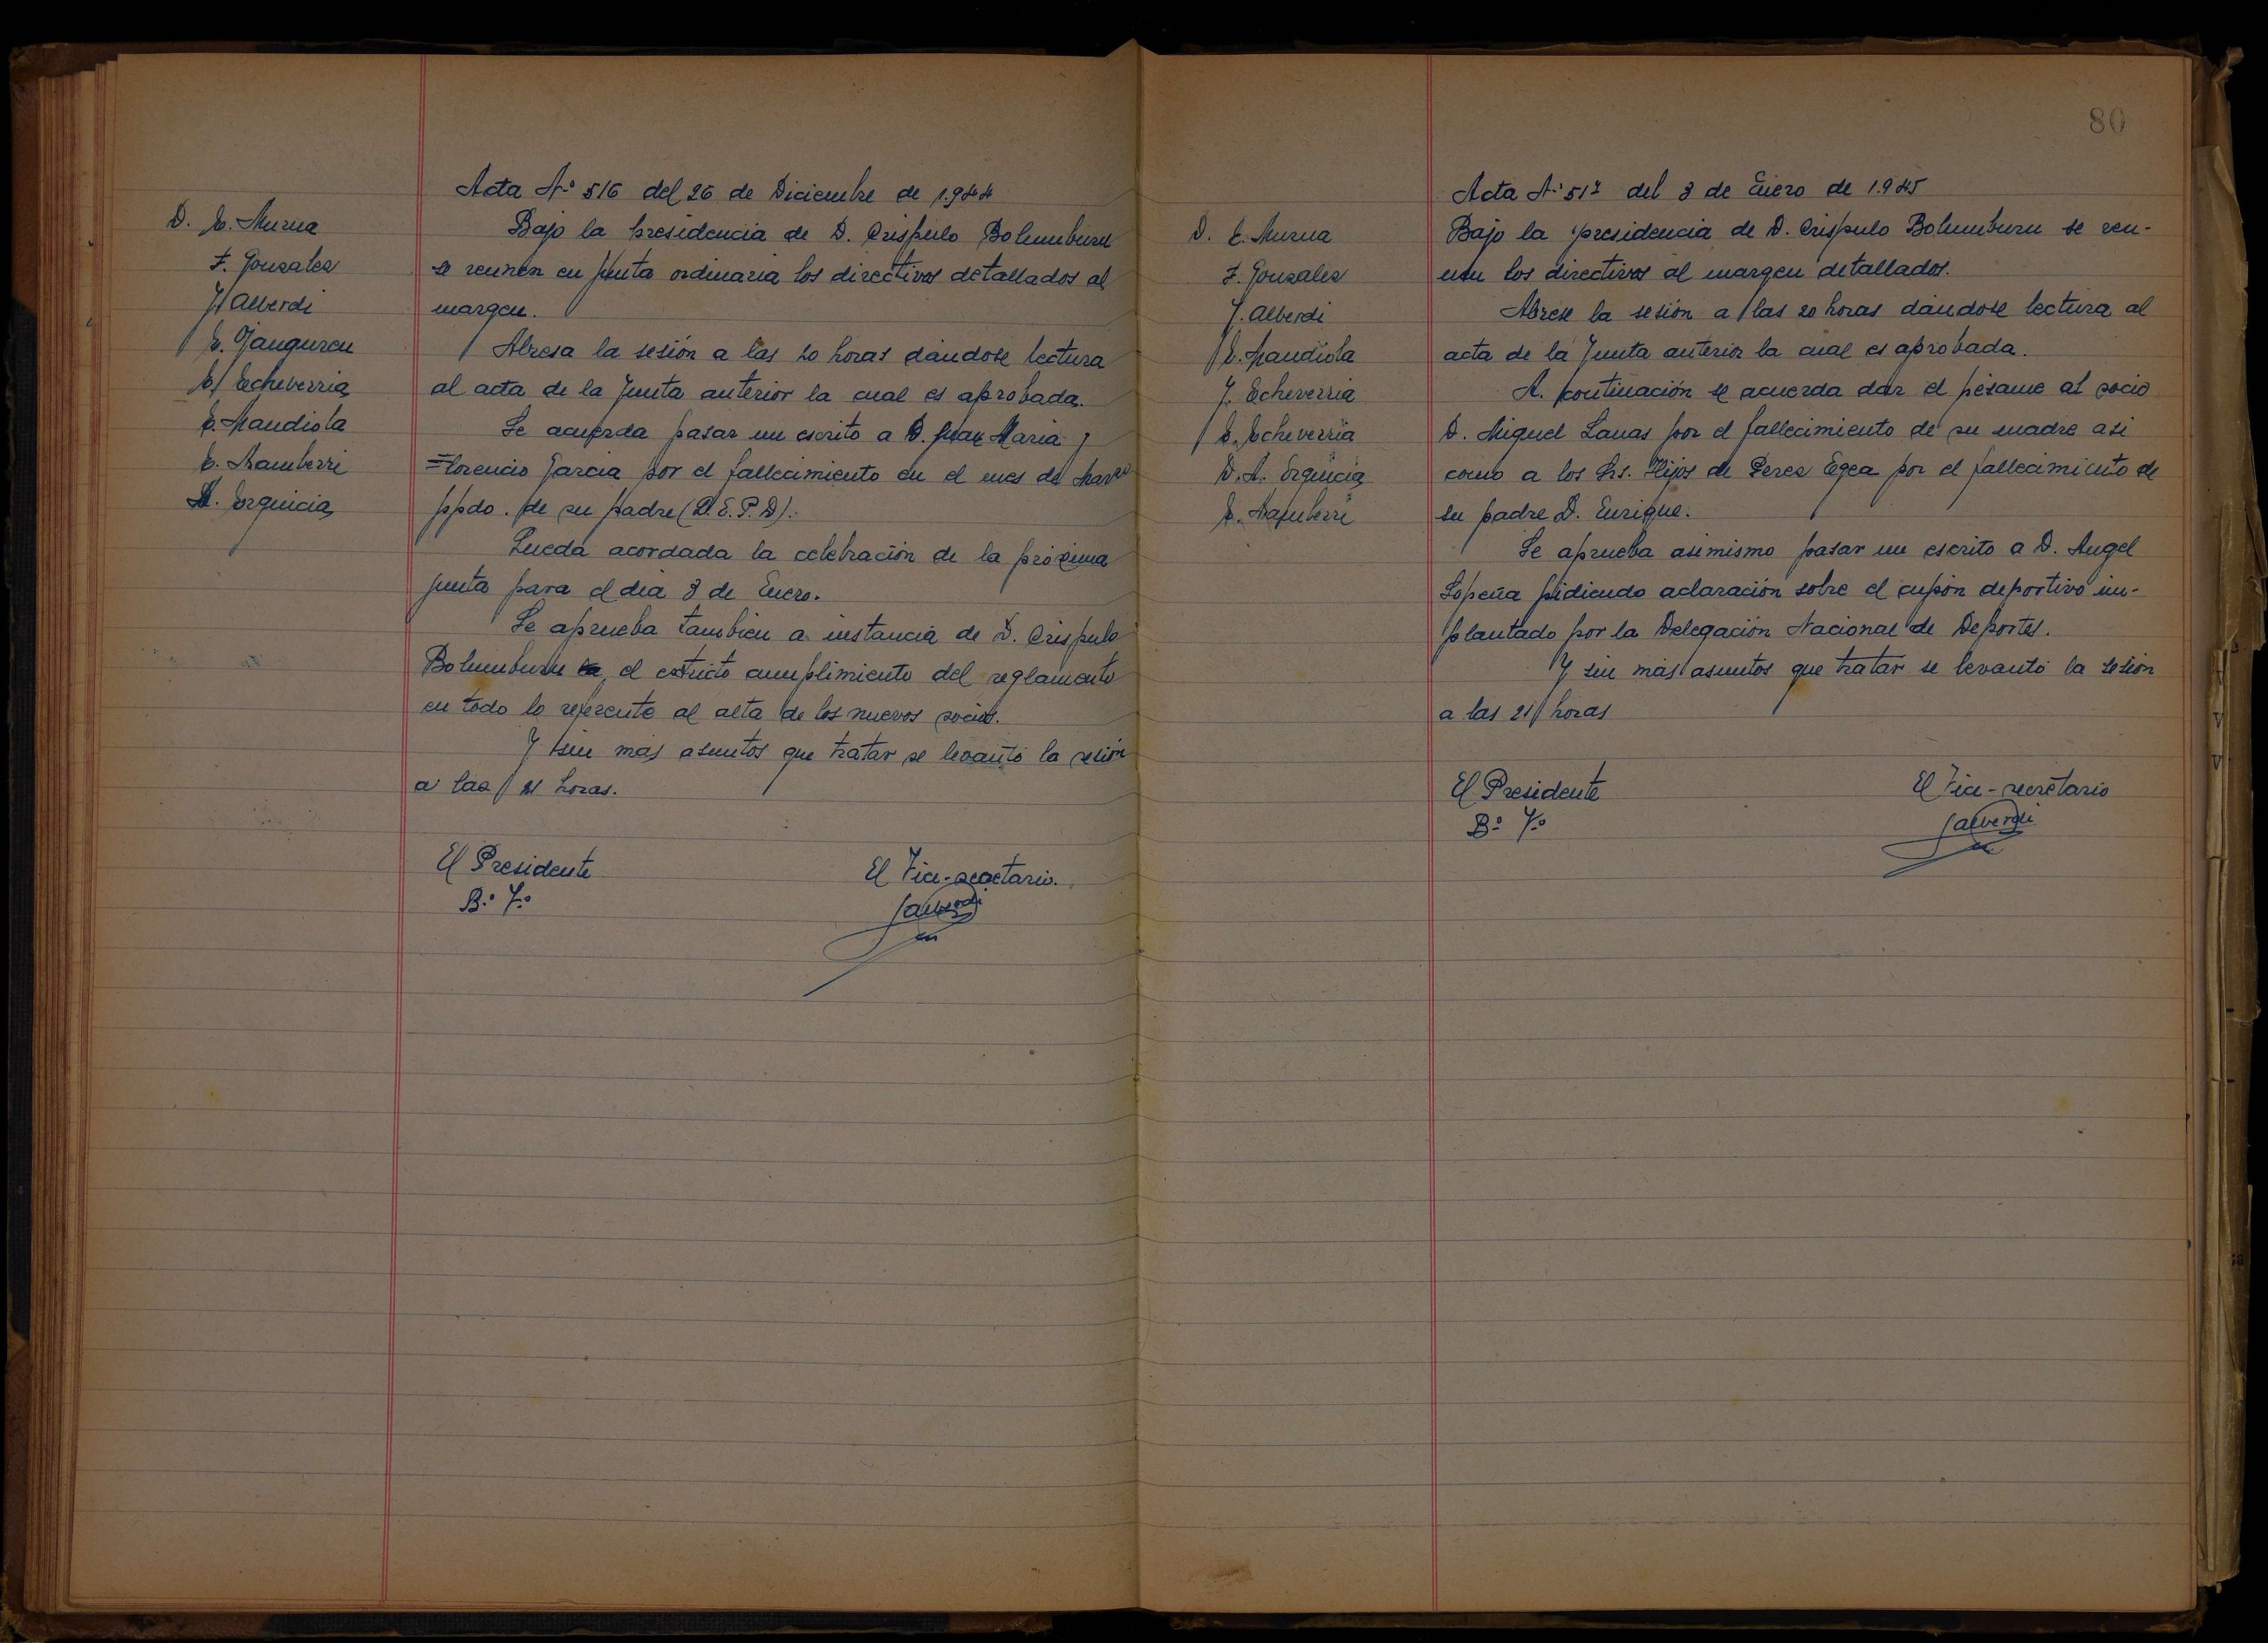 Acta Nº 516 del 26 de Diciembre de 1.944
D. E. Murua
F. Gonzalez
J. Alberdi
E. Janguren
E. Echeverria
E. Mandiola
E. Aramberri
A. Erquicia
Bajo la presidencia de D. Crispulo Bolumburu
se reunen en junta ordinaria los directivos detallados al
margen.
Abresa la sesión a las 20 horas dándose lectura
al acta de la Junta anterior la cual es aprobada.
Se acuerda pasar un escrito a D. Juan Maria y
Florencio Garcia por el fallecimiento en el mes de Marzo
ppdo. de su padre (D.E.P.D).
Queda acordada la celebración de la próxima
junta para el dia 3 de Enero.
Se aprueba tambien a instancia de D. Crispulo
Bolumburu el estricto cumplimiento del reglamento
en todo lo referente al alta de los nuevos socios.
Y sin mas asuntos que tratar se levantó la sesión
a las 21 horas.
El Presidente
Bº Vº
El Vice-secretario.
JAlberdi
80
Acta Nº 517 del 3 de Enero de 1.945
D. E. Murua
F. Gonzalez
J. Alberdi
E. Mandiola
J. Echeverria
E. Echeverria
D. A. Erquicia
E. Aramberri
Bajo la presidencia de D. Crispulo Bolumburu se reu-
nen los directivos al margen detallados.
Abrese la sesión a las 20 horas dándose lectura al
acta de la Junta anterior la cual es aprobada.
A. continuación se acuerda dar el pésame al socio
D. Miguel Lanas por el fallecimiento de su madre asi
como a los Srs. Hijos de Perez Egea por el fallecimiento de
su padre D. Enrique.
Se aprueba asimismo pasar un escrito a D. Angel
Sopeña pidiendo aclaración sobre el cupón deportivo im-
plantado por la Delegación Nacional de Deportes.
Y sin más asuntos que tratar se levantó la sesión
a las 21 horas
El Presidente
Bº Vº
El Vice-secretario
JAlberdi